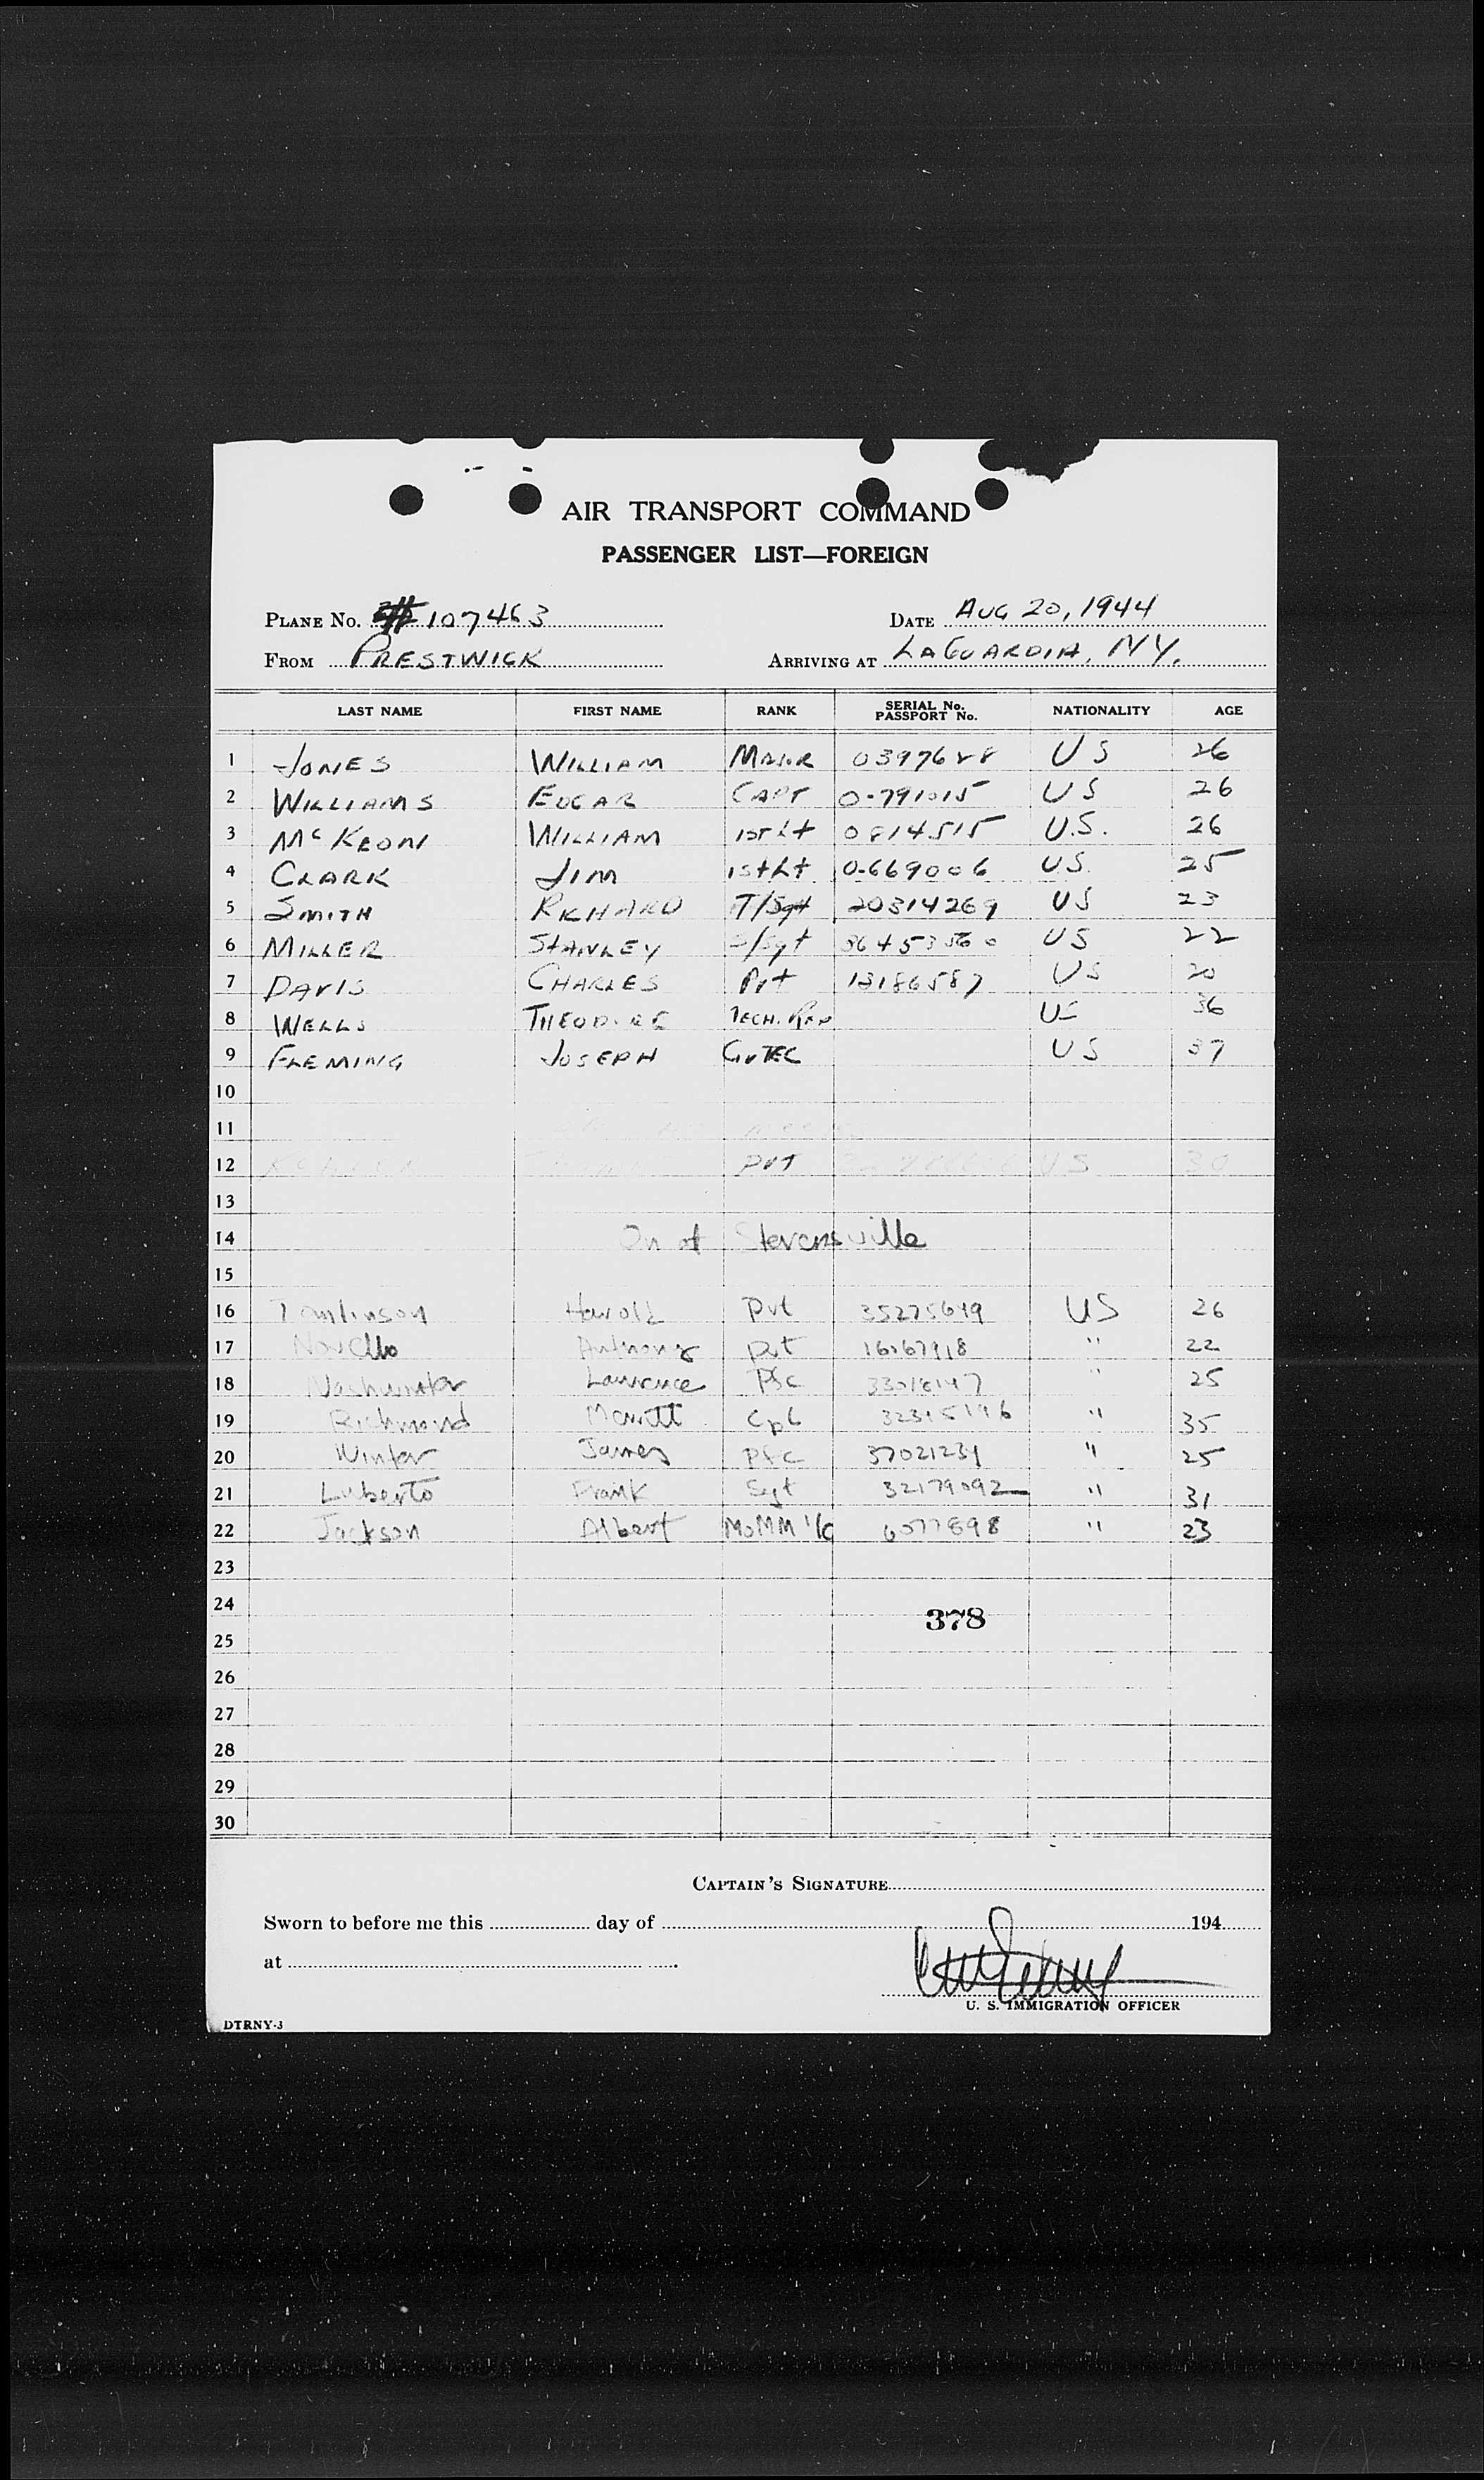 AIR TRANSPORT COMMAND
PASSENGER LIST—FOREIGN
PLANE No. # 107463 DATE AUG 20, 1944
FROM PRESTWICK ARRIVING AT LAGUARDIA, NY.
LAST NAME FIRST NAME RANK SERIAL No. PASSPORT No. NATIONALITY AGE
1 JONES WILLIAM MAJOR US 26
2 WILLIAMS EDGAR CAPT 0-791015 US 26
3 McKEOWN WILLIAM 1st Lt 0814515 U.S. 26
4 CLARK JIM 1st Lt 0-669006 US 25
5 SMITH RICHARD T/Sgt 20314269 US 23
6 MILLER STANLEY S/Sgt US 22
7 DAVIS CHARLES Pvt 13186587 US 20
8 WELLS THEODORE TECH. REP US 36
9 FLEMING JOSEPH CIV TEC US 37
10
11
12 PVT US 30
13
14 On at Stevensville
15
16 Tomlinson Harold Pvt 35275649 US 26
17 Novello Anthony Pvt 16067918 " 22
18 Lawrence Pfc " 25
19 Richmond Merritt Cpl " 35
20 Winter James Pfc 37021234 " 25
21 Luberto Frank Sgt 32179092 " 31
22 Jackson Albert MoMM 1/c 6077898 " 23
23
24
378
25
26
27
28
29
30
CAPTAIN'S SIGNATURE
Sworn to before me this day of 194
at
U. S. IMMIGRATION OFFICER
DTRNY-3